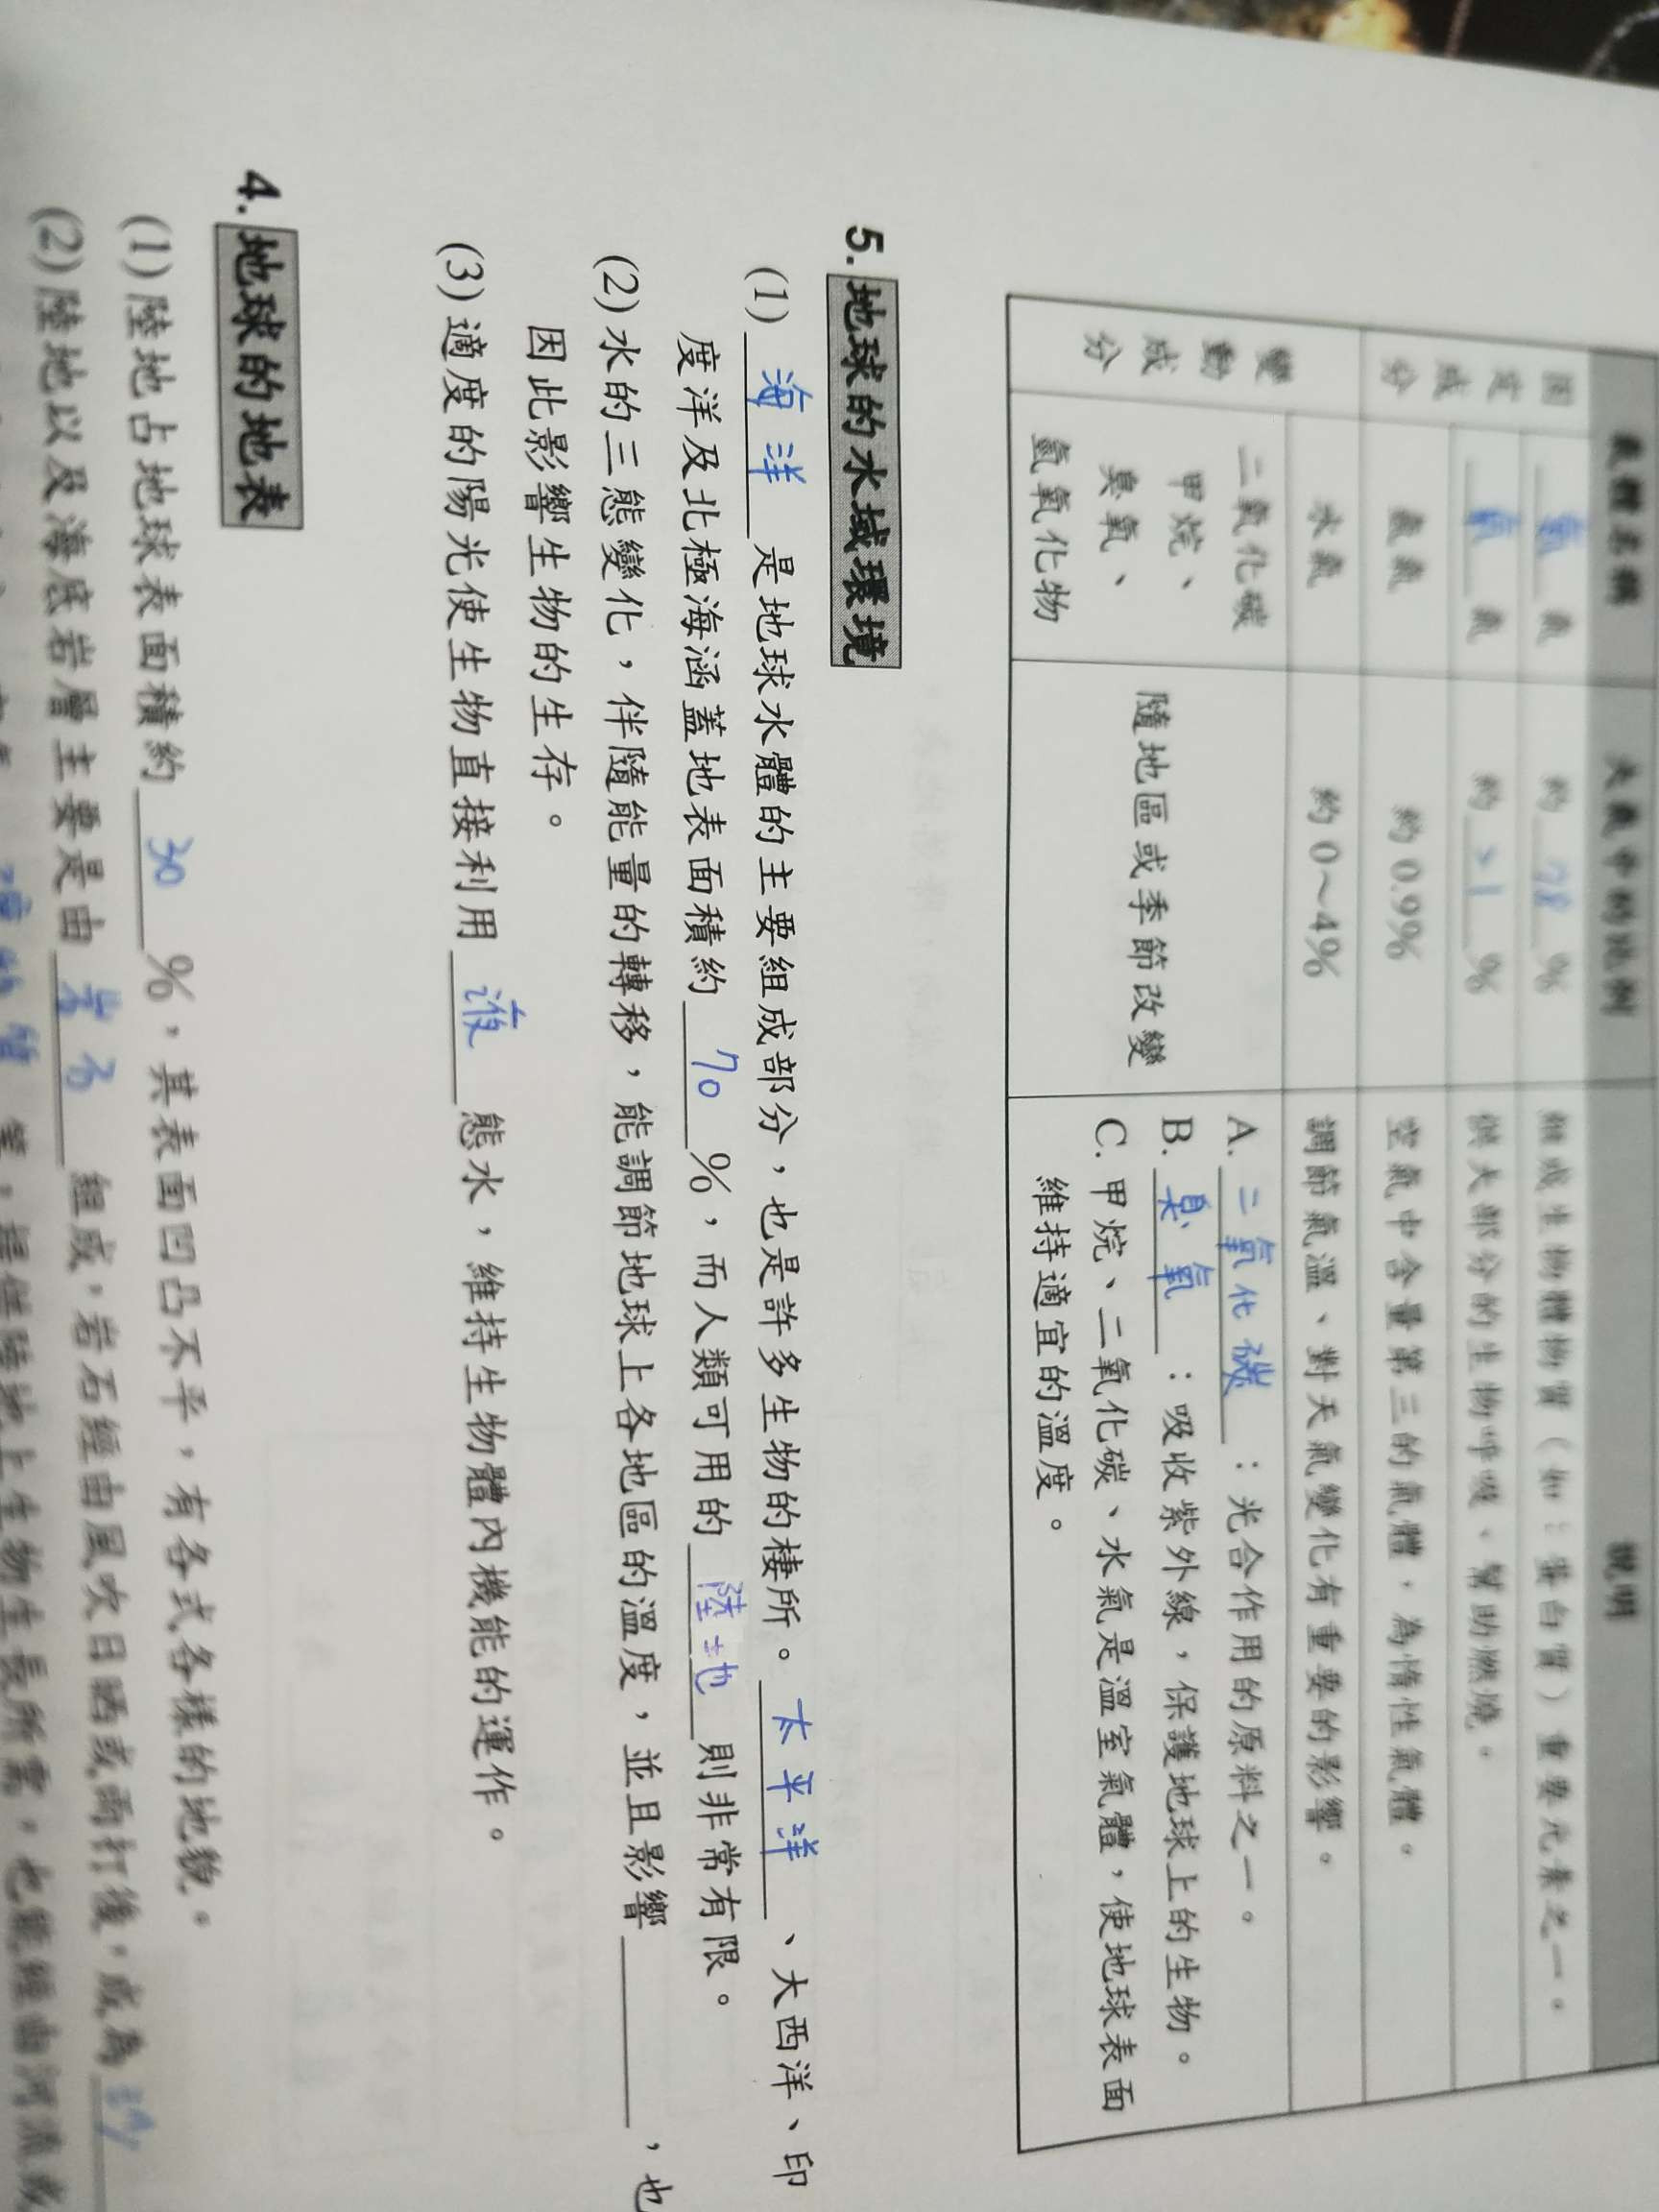 氣體名稱 大氣中的比例 說明
固定成分
氮 氣 約 78 % 組成生物體物質（如：蛋白質）重要元素之一。
氧 氣 約 >1 % 供大部分的生物呼吸、幫助燃燒。
氬氣 約 0.9% 空氣中含量第三的氣體，為惰性氣體。
變動成分
水氣 約 0～4% 調節氣溫、對天氣變化有重要的影響。
二氧化碳
甲烷、
臭氧、
氫氧化物
隨地區或季節改變
A. 二氧化碳 ：光合作用的原料之一。
B. 臭氧 ：吸收紫外線，保護地球上的生物。
C. 甲烷、二氧化碳、水氣是溫室氣體，使地球表面
維持適宜的溫度。
5. 地球的水域環境
(1) 海洋 是地球水體的主要組成部分，也是許多生物的棲所。 太平洋 、大西洋、印
度洋及北極海涵蓋地表面積約 70 %，而人類可用的 陸地 則非常有限。
(2) 水的三態變化，伴隨能量的轉移，能調節地球上各地區的溫度，並且影響 ，也
因此影響生物的生存。
(3) 適度的陽光使生物直接利用 液 態水，維持生物體內機能的運作。
4. 地球的地表
(1) 陸地占地球表面積約 30 %，其表面凹凸不平，有各式各樣的地貌。
(2) 陸地以及海底岩層主要是由 岩石 組成，岩石經由風吹日晒或雨打後，成為
等，提供陸地上生物生長所需，也能經由河流或